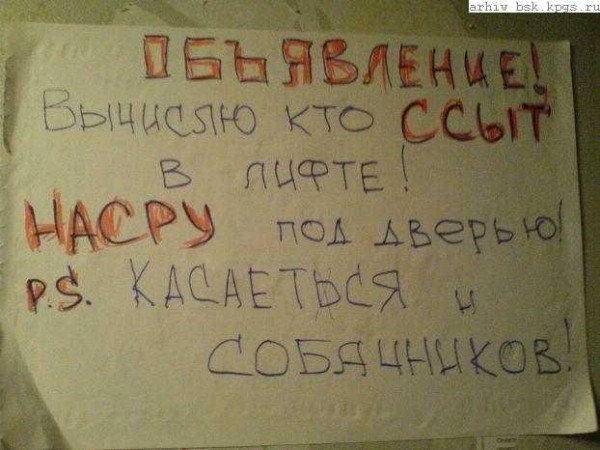 arhiv_bsk.kpgs.ru
ОБЪЯВЛЕНИЕ!
ВЫЧИСЛЮ КТО ССЫТ
В ЛИФТЕ!
НАСРУ ПОД ДВЕРЬЮ!
P.S. КАСАЕТЬСЯ И
СОБАЧНИКОВ!